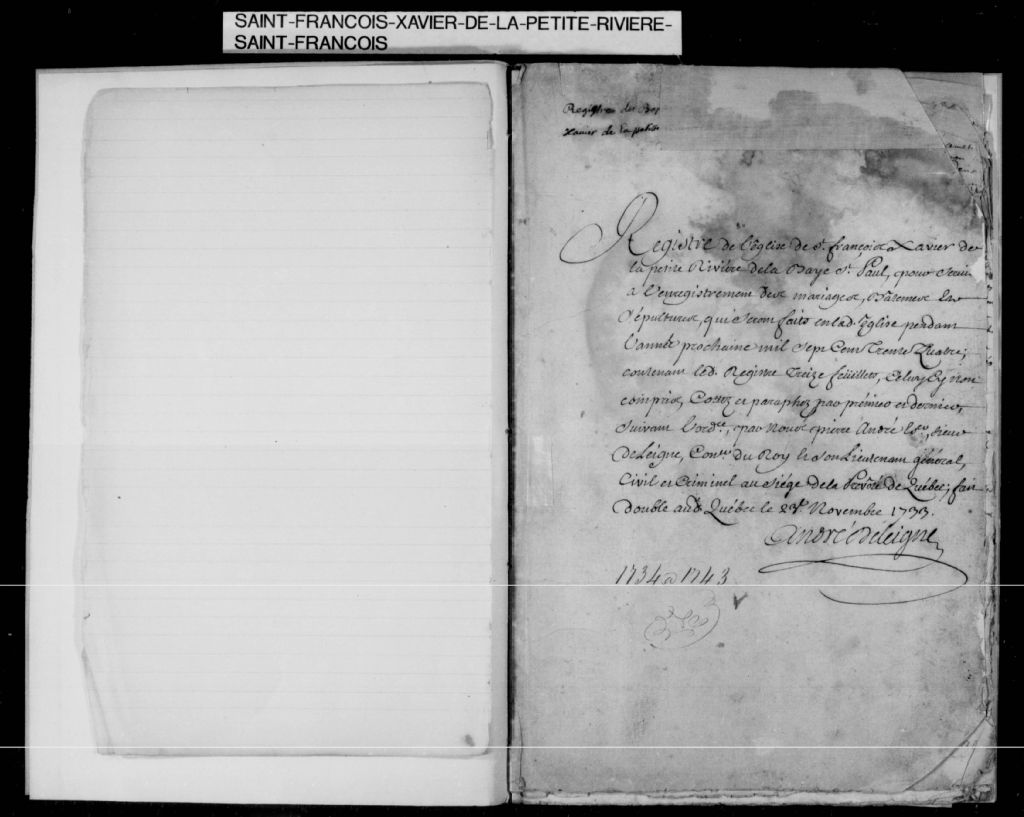 SAINT-FRANCOIS-XAVIER-DE-LA-PETITE-RIVIERE-
SAINT-FRANCOIS
Registres des
Xavier de la petite
Registre de l'église de St. françois Xavier de
la petite Rivière de la Baye St. Paul, pour servir
à l'enregistrement des mariages, Bâtemes et
Sépultures, qui seront faits en lad. Eglise pendant
l'année prochaine mil sept Cent Trente Quatre;
contenant led. Registre Treize feüillets, Celuy Cy non
compris, Cottez et paraphez par premier et dernier,
suivant l'ordce, par Nous pierre André Er, sieur
De Leigne, Coner du Roy et son Lieutenant général,
Civil et Criminel au siége de la Prévoté de Québec; fait
Double aud. Québec le Novembre 1733.
André De Leigne
1734 a 1743